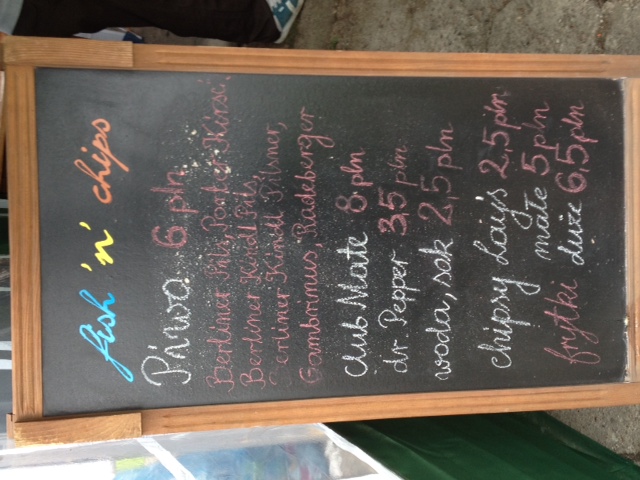 fish 'n' chips
Piwa 6 pln
Berliner Pils Porter Kirsch
Berliner Kindl Pils
Berliner Kindl Pilsner,
Gambrinus, Radeberger
Club Mate 8 pln
dr. Pepper 3,5 pln
woda, sok 2,5 pln
chipsy Lay's 2,5 pln
małe 5 pln
frytki duże 6,5 pln